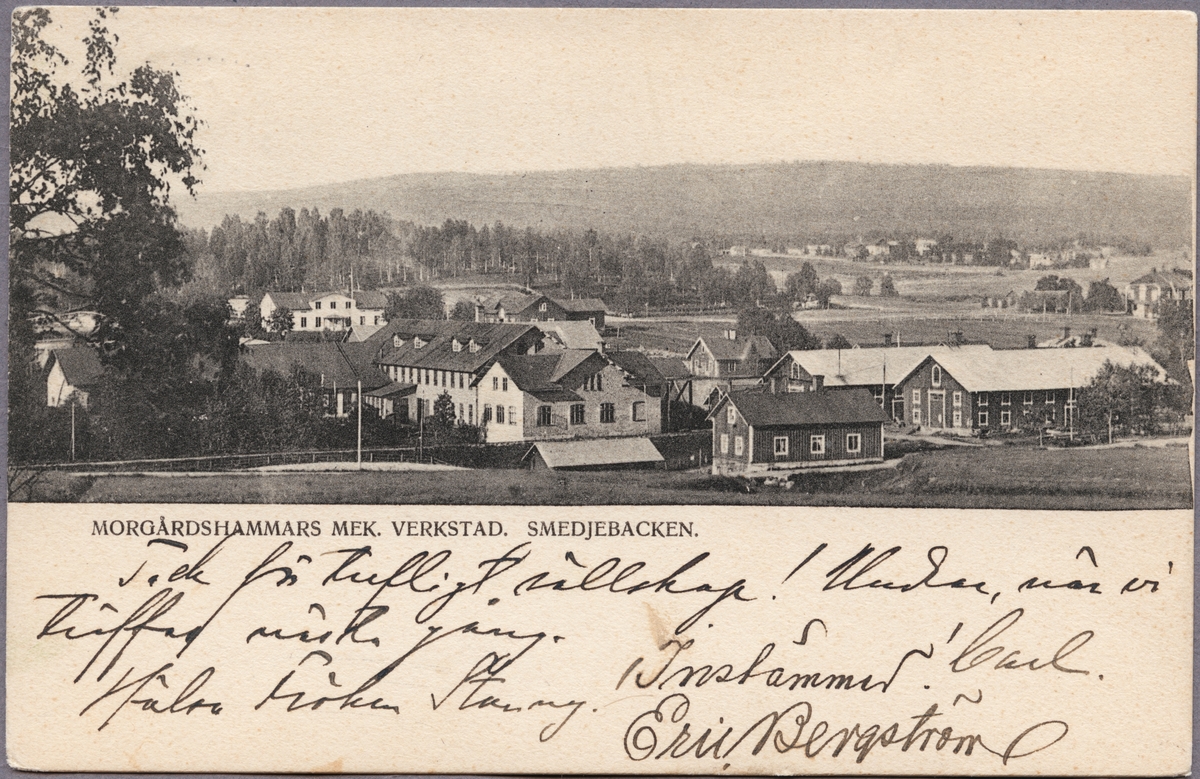 MORGÅRDSHAMMARS MEK. VERKSTAD. SMEDJEBACKEN.
Tack för trefligt sällskap! Undrar, när vi
träffas nästa gång.
Instämmes! Carl.
Hälsa fröken
Eric Bergström